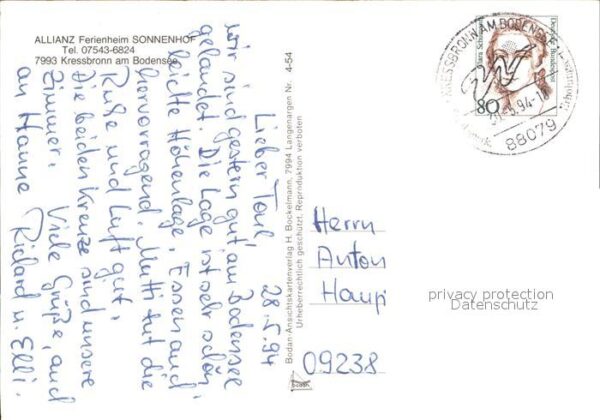 ALLIANZ Ferienheim SONNENHOF
Tel. 07543-6824
7993 Kressbronn am Bodensee
28.5.94
Lieber Toni,
wir sind gestern gut am Bodensee
gelandet. Die Lage ist sehr schön,
leichte Höhenlage, Essen auch
hervorragend. Mutti tut die
Ruhe und Luft gut.
Die beiden Kreuze sind unsere
Zimmer. Viele Grüße, auch
an Hanne Richard u. Elli.
Bodan-Ansichtskartenverlag H. Bockelmann, 7994 Langenargen Nr. 4-54
Urheberrechtlich geschützt. Reproduktion verboten
KRESSBRONN AM BODENSEE
5.94
88079
80
Deutsche Bundespost
Herrn
Anton
Haupi
09238
privacy protection
Datenschutz